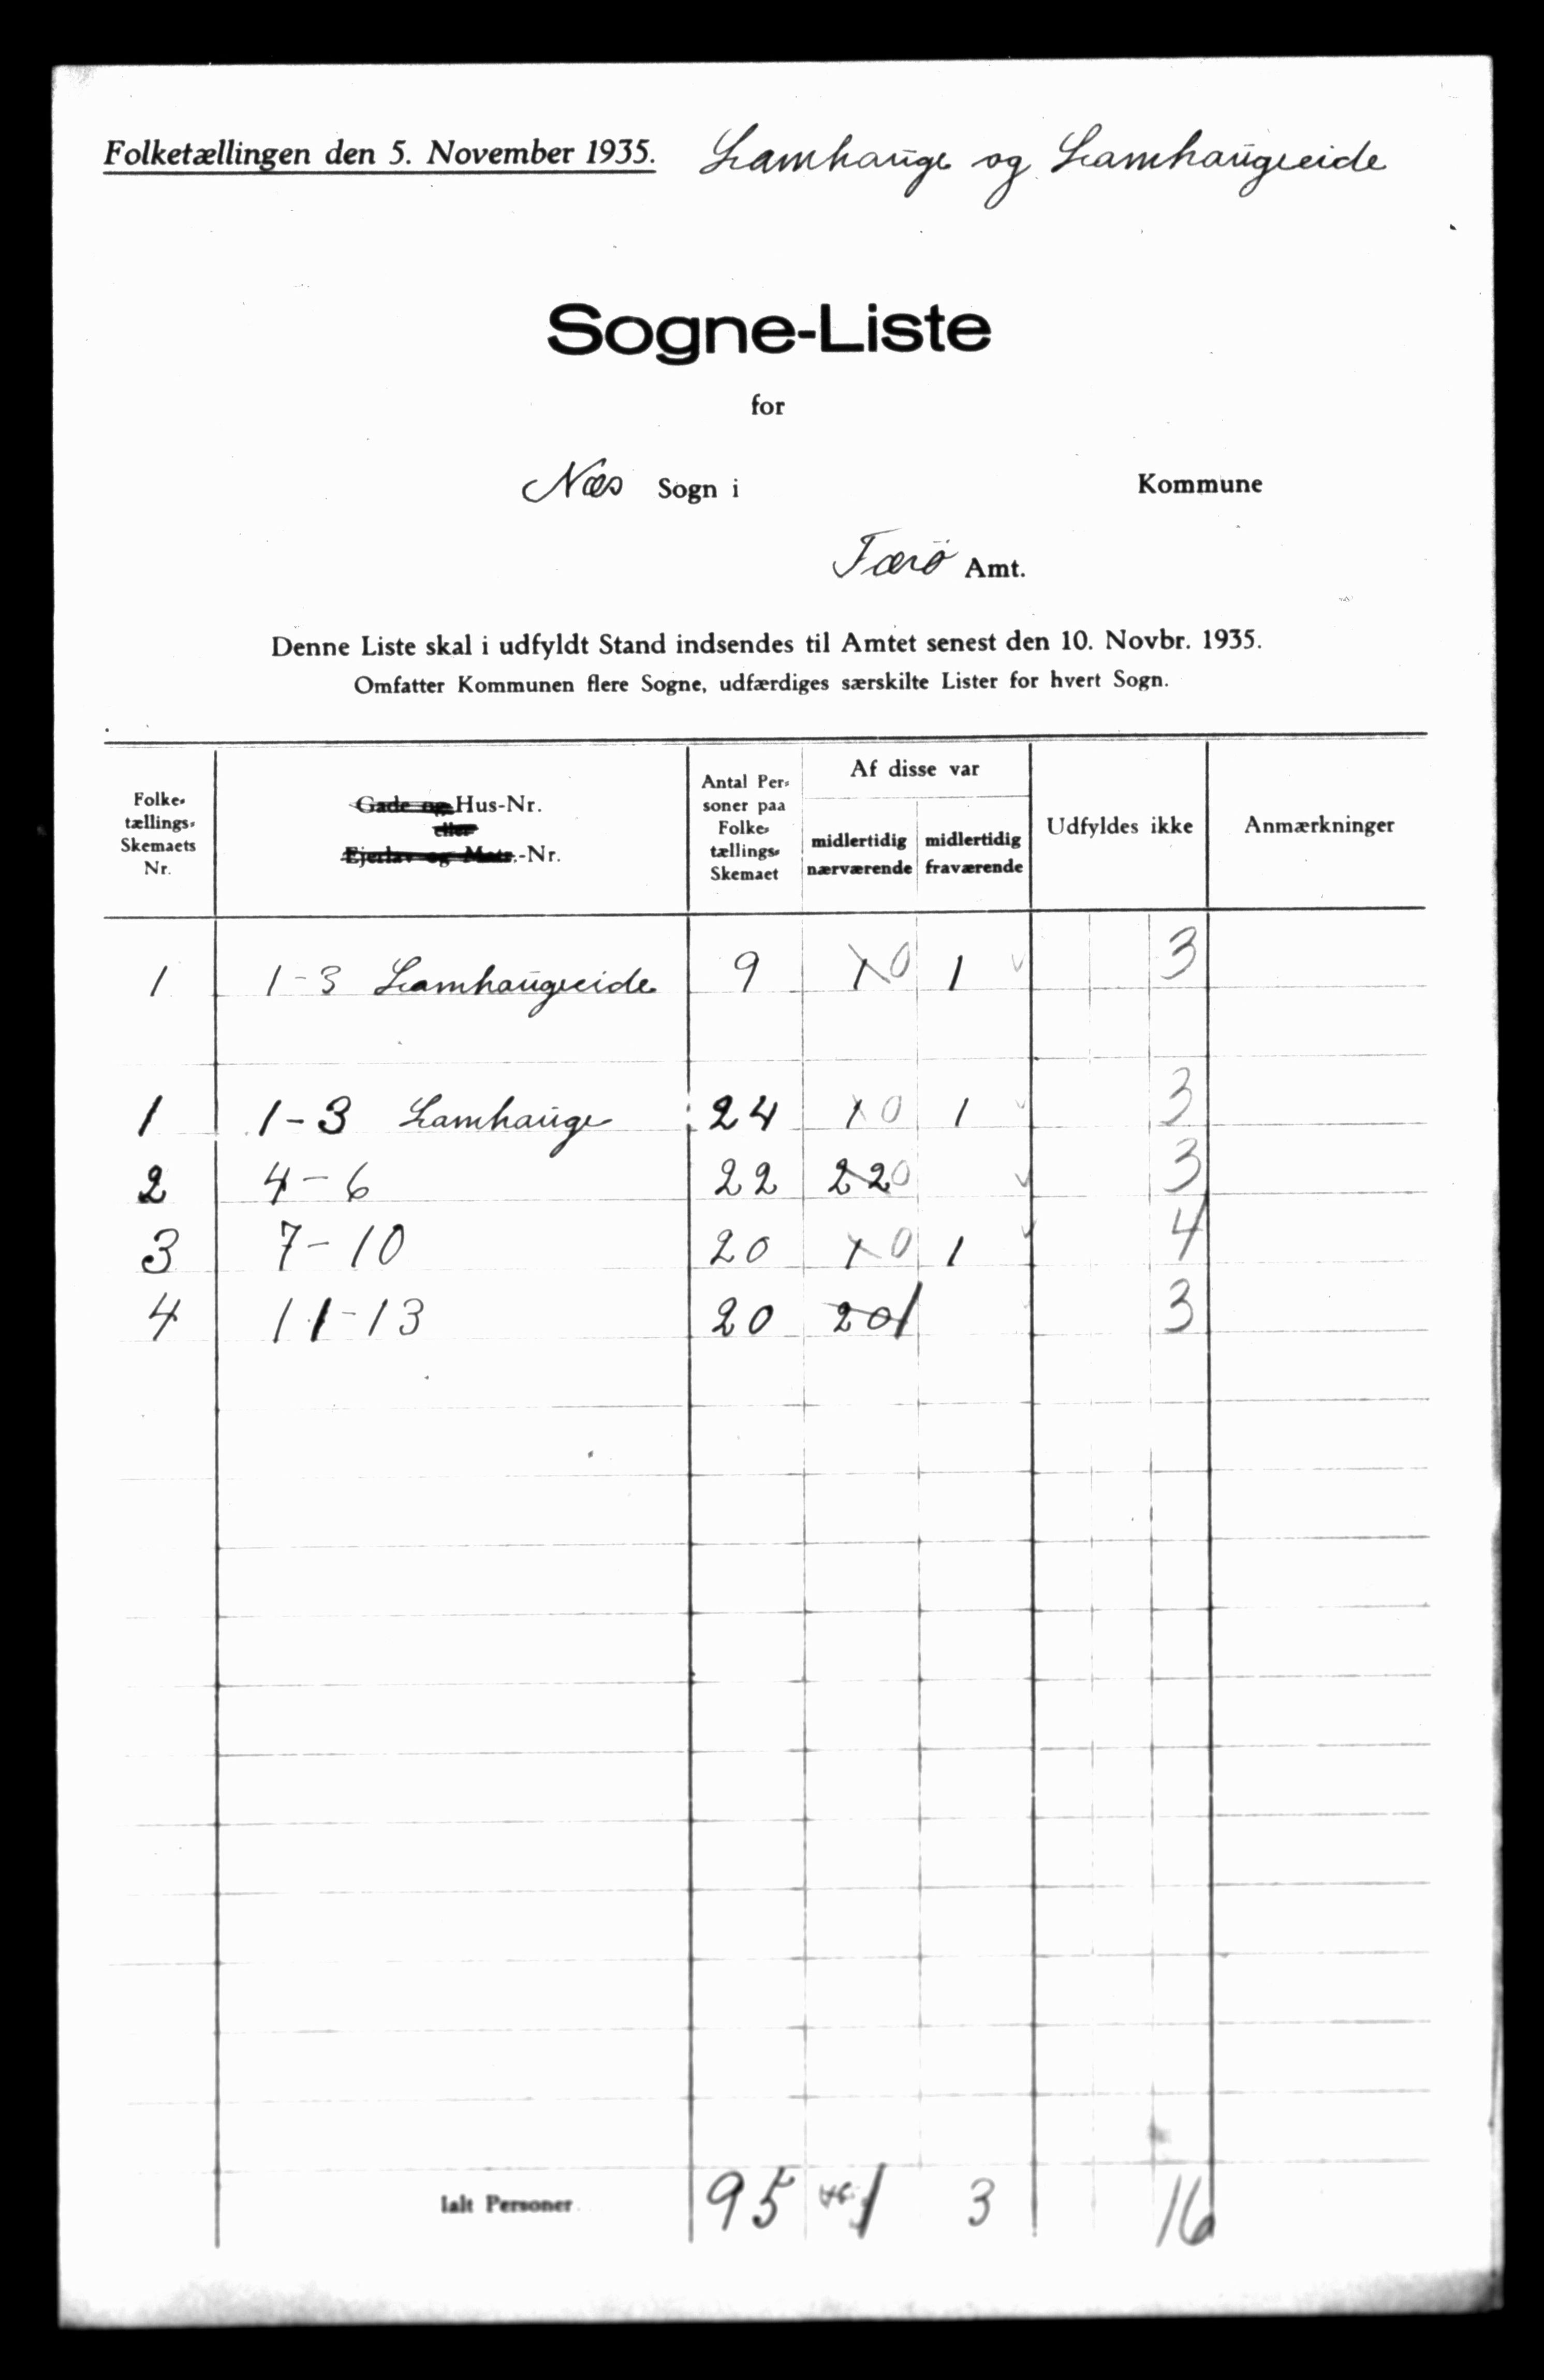 Folketællingen den 5. November 1935. Lamhauge og Lamhaugeeide
Sogne-Liste
for
Næs Sogn i Kommune
Færö Amt.
Denne Liste skal i udfyldt Stand indsendes til Amtet senest den 10. Novbr. 1935.
Omfatter Kommunen flere Sogne, udfærdiges særskilte Lister for hvert Sogn.
Folke-
tællings-
Skemaets
Nr.
Gade og Hus-Nr.
eller
Ejerlav og Matr.-Nr.
Antal Per-
soner paa
Folke-
tællings-
Skemaet
Af disse var
midlertidig
nærværende
midlertidig
fraværende
Udfyldes ikke
Anmærkninger
1 1-3 Lamhaugeeide 9 1 0 1 3
1 1-3 Lamhauge 24 1 0 1 3
2 4-6 22 22 0 3
3 7-10 20 1 0 1 4
4 11-13 20 20 1 3
ialt Personer 95 1 3 16